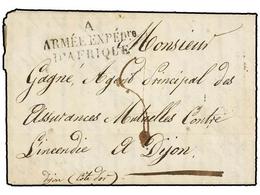 A
ARMÉE EXPÉD.re
D'AFRIQUE
Monsieur
Gagne, Agent Principal des
Assurances Mutuelles Contre
L'incendie a Dijon.
Dijon (Côte d'or)